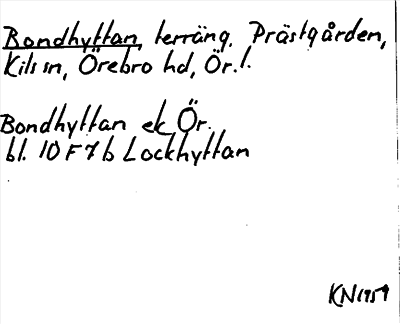 Bondhyttan, terräng, Prästgården,
Kils sn, Örebro hd, Ör.l.
Bondhyttan ek Ör.
bl. 10 F 7 b Lockhyttan
KN 1959